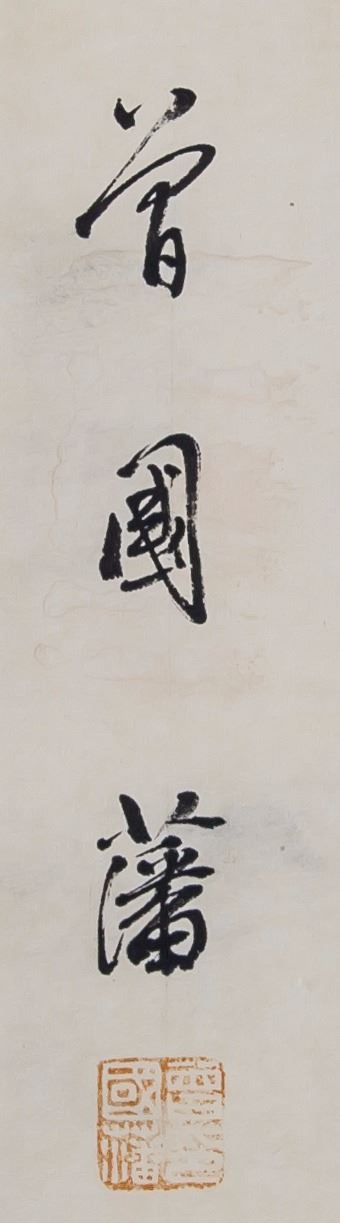 曾國藩
曾國藩